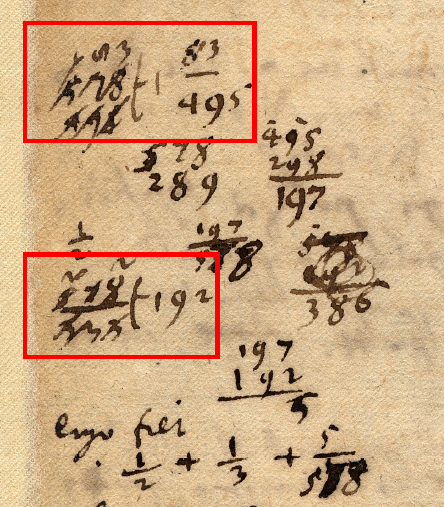 83
578 ( 1 83/495
578 495
289 298
197
1/2 197
2
578 ( 192
333
386
197
192
5
ergo fiet
1/2 + 1/3 + 5/578